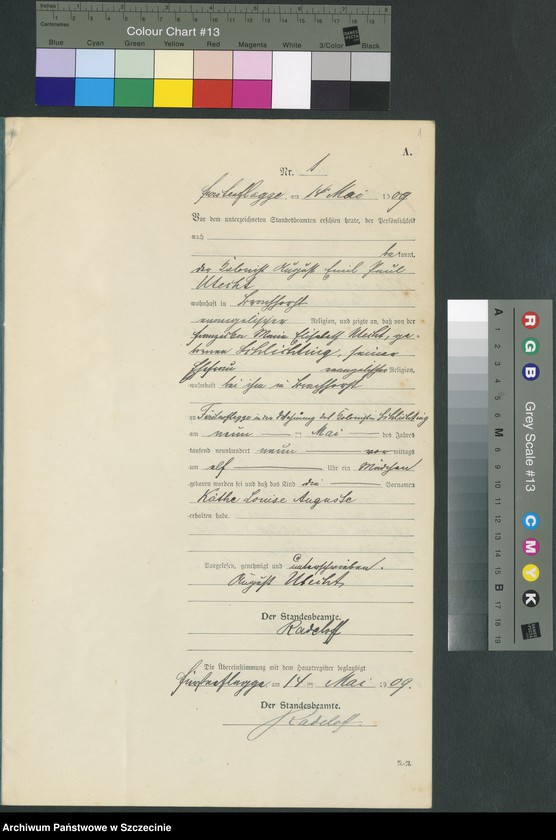 Inches 1 2 3 4 5 6 7 8
Centimetres 1 2 3 4 5 6 7 8 9 10 11 12 13 14 15 16 17 18 19
Colour Chart #13
Blue Cyan Green Yellow Red Magenta White 3/Color Black
1
A.
Nr. 1
Fürstenflagge am 14 Mai 1909
Vor dem unterzeichneten Standesbeamten erschien heute, der Persönlichkeit
nach
bekannt,
der Kolonist August Emil Paul
Utecht
wohnhaft in
evangelischer Religion, und zeigte an, daß von der
Marie Elisabeth Utecht, ge-
borenen seiner
Ehefrau evangelischer Religion,
wohnhaft bei ihm in
zu Fürstenflagge in der Wohnung des Kolonisten
am neun Mai des Jahres
tausend neunhundert neun vormittags
um elf Uhr ein Mädchen
geboren worden sei und daß das Kind die Vornamen
Käthe Louise Auguste
erhalten habe.
Vorgelesen, genehmigt und unterschrieben.
August Utecht
Der Standesbeamte.
Radeloff
Die Übereinstimmung mit dem Hauptregister beglaubigt
Fürstenflagge am 14 Mai 1909.
Der Standesbeamte.
Radeloff
R G B
Grey Scale #13
C M Y K
A 1 2 3 4 5 6 M 8 9 10 11 12 13 14 15 B 17 18 19
Archiwum Państwowe w Szczecinie